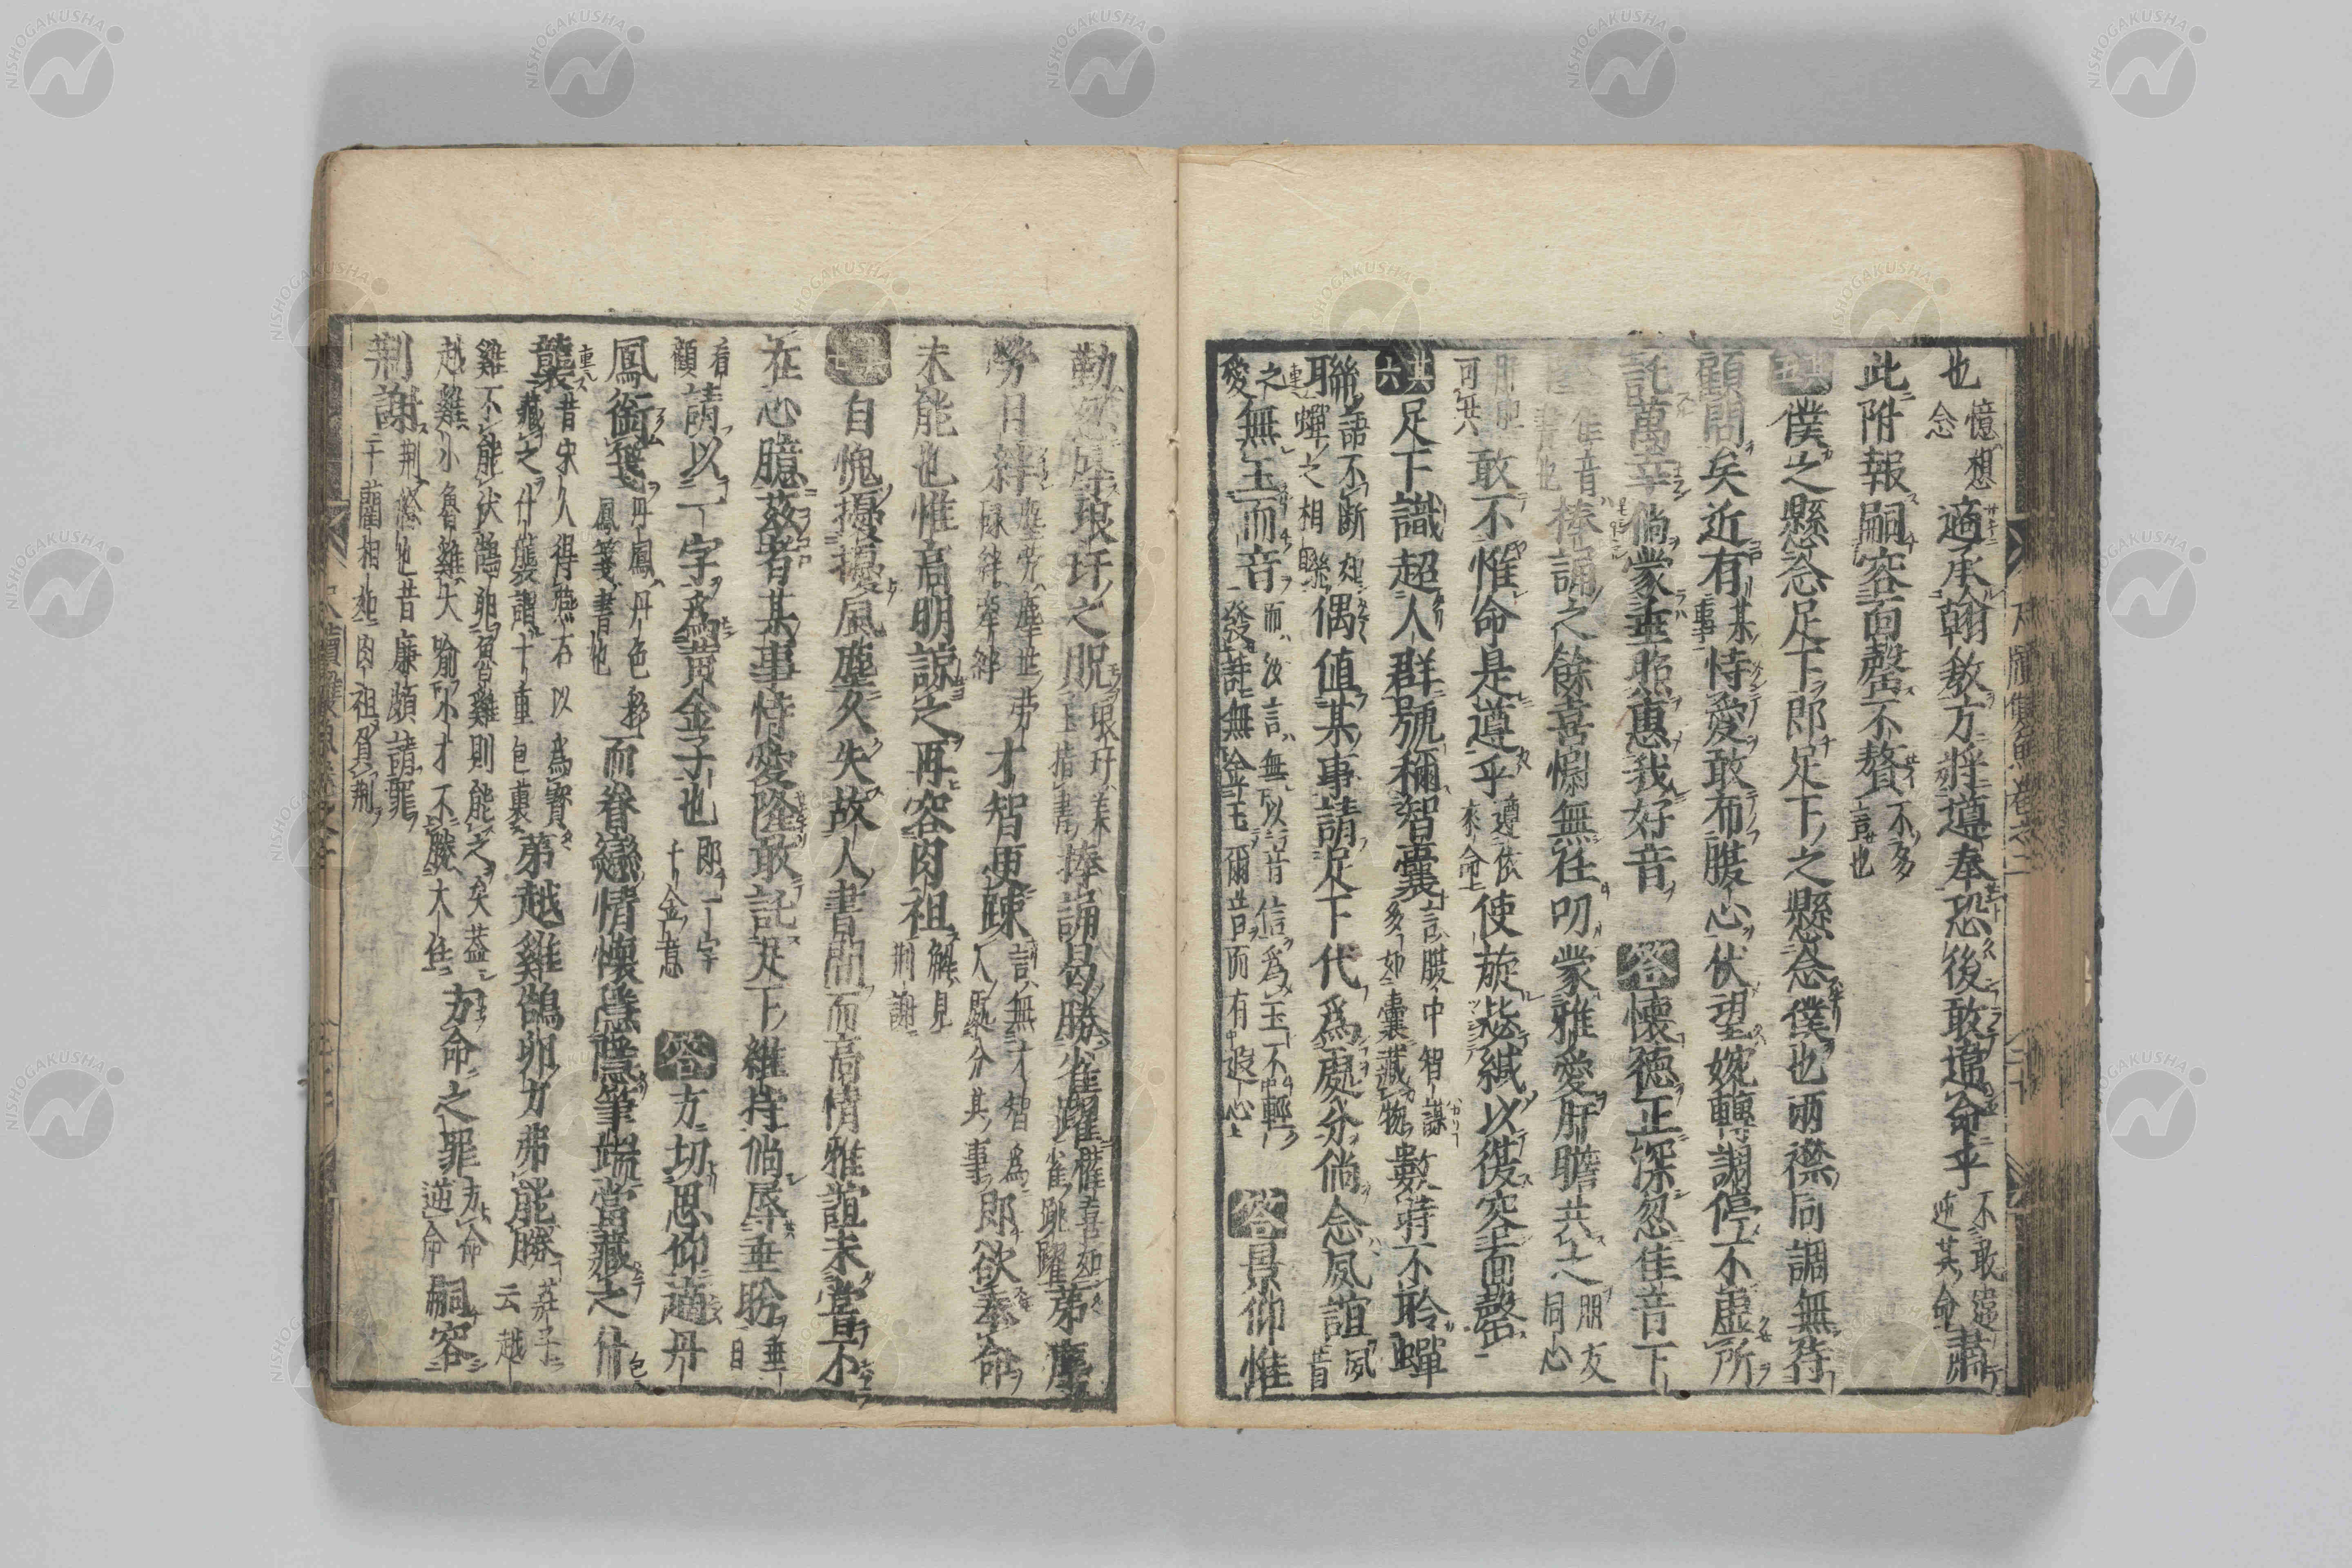 也憶想念適承翰敎方將遵奉恐後敢違命乎不敢違逆其命肅
此附報嗣容面罄不贅不多言也
其五僕之懸念足下郎足下之懸念僕也兩襟同調無待
顧問矣近有某事恃愛敢布腹心伏望婉轉調停不虛所
託萬幸倘蒙垂照惠我好音答懷德正深忽佳音下
佳音書也捧誦之餘喜懰無任叨蒙雅愛肝膽共之朋友同心
肝膽可共敢不惟命是遵乎遵依來命使旋毖緘以復容面罄
其六足下識超人群號稱智囊言腹中智謀多如囊藏物數時不聆蟬
聯語不斷如蟬之相聯偶值某事請足下代爲處分倘念夙誼夙昔
之愛無玉而音而汝言無以音信爲玉不輕發詩無金玉爾音而有遐心答景仰惟
勤忽辱琅玕之貺琅玕美玉指書捧誦曷勝雀躍懽喜如雀跳躍第塵
勞日絆塵勞塵世勞碌絆牽絆才智更疎言無才智爲人處分其事郎欲奉命
未能也惟高明諒之再容肉袒解見荆謝
其七自愧擾擾風塵久失故人書問而高情雅誼未嘗不
在心臆茲者某事恃愛隆敢託足下維持倘辱垂盼垂目
看顧請以一字爲黃金子也郎一字千金意答方切思仰適丹
鳳銜箋丹鳳丹色鳳箋書也而眷戀情懷隱隱筆端當藏之什
襲昔宋人得燕石以爲寶包藏之什襲謂十重包裹第越雞鵠卵力弗能勝莊子云越
雞不能伏鵠卵魯雞則能之矣蓋越雞小魯雞大喻小才不勝大任方命之罪方命逆命嗣容
荆謝荆條也昔廉頗請罪于藺相如肉袒負荆